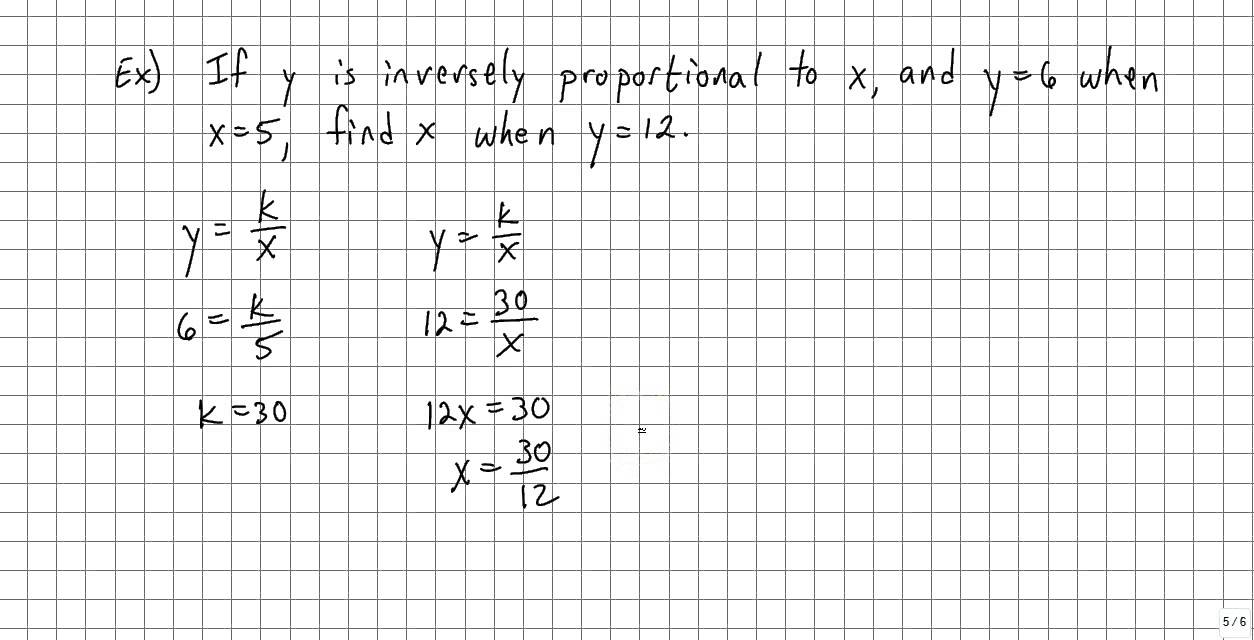 Ex) If y is inversely proportional to x, and y=6 when
x=5, find x when y=12.
y = k/x
6 = k/5
k=30
y = k/x
12 = 30/x
12x=30
x = 30/12
5/6